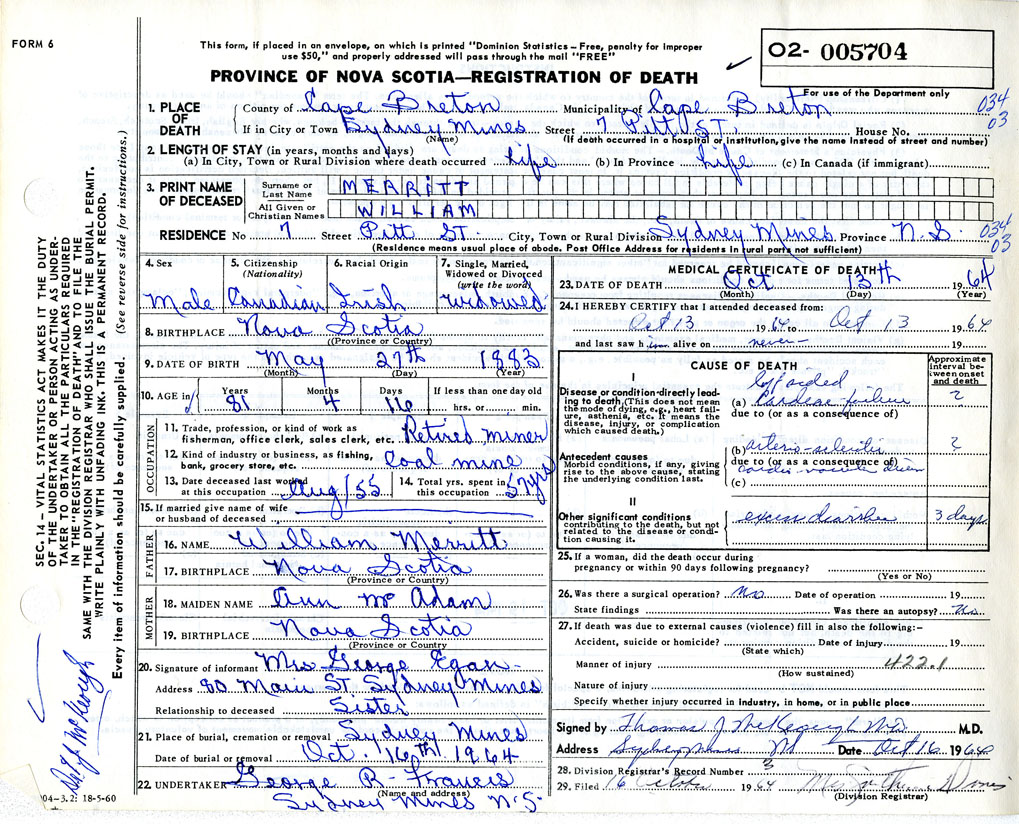 FORM 6
This form, if placed in an envelope, on which is printed "Dominion Statistics – Free, penalty for improper
use $50," and properly addressed will pass through the mail "FREE"
PROVINCE OF NOVA SCOTIA—REGISTRATION OF DEATH
02- 005704
For use of the Department only
034
03
1. PLACE OF DEATH
County of Cape Breton Municipality of Cape Breton
If in City or Town Sydney Mines Street 7 Pitt St. House No.
(Name) (If death occurred in a hospital or institution, give the name instead of street and number)
2. LENGTH OF STAY (in years, months and days)
(a) In City, Town or Rural Division where death occurred Life (b) In Province Life (c) In Canada (if immigrant)
3. PRINT NAME OF DECEASED
Surname or Last Name MERRITT
All Given or Christian Names WILLIAM
RESIDENCE No 7 Street Pitt St. City, Town or Rural Division Sydney Mines Province N.S.
034
03
(Residence means usual place of abode. Post Office Address for residents in rural parts not sufficient)
4. Sex
Male
5. Citizenship
(Nationality)
Canadian
6. Racial Origin
Irish
7. Single, Married,
Widowed or Divorced
(write the word)
Widowed
8. BIRTHPLACE Nova Scotia
(Province or Country)
9. DATE OF BIRTH May 27th 1883
(Month) (Day) (Year)
10. AGE in
Years Months Days If less than one day old
81 4 16 hrs. or min.
OCCUPATION
11. Trade, profession, or kind of work as
fisherman, office clerk, sales clerk, etc. Retired miner
12. Kind of industry or business, as fishing,
bank, grocery store, etc. Coal mine
13. Date deceased last worked
at this occupation Aug/55
14. Total yrs. spent in
this occupation 57 yrs
15. If married give name of wife
or husband of deceased
FATHER
16. NAME William Merritt
17. BIRTHPLACE Nova Scotia
(Province or Country)
MOTHER
18. MAIDEN NAME Ann Mc Adam
19. BIRTHPLACE Nova Scotia
(Province or Country)
20. Signature of informant Mrs George Egan
Address 80 Main St. Sydney Mines
Relationship to deceased Sister
21. Place of burial, cremation or removal Sydney Mines
Date of burial or removal Oct. 16th 1964
22. UNDERTAKER George R. Francis
(Name and address)
Sydney Mines N.S.
MEDICAL CERTIFICATE OF DEATH
23. DATE OF DEATH Oct 13th 1964
(Month) (Day) (Year)
24. I HEREBY CERTIFY that I attended deceased from:
Oct 13 1964 to Oct 13 1964
and last saw him alive on never 19
CAUSE OF DEATH
Approximate
interval be-
tween onset
and death
I
Disease or condition directly lead-
ing to death (This does not mean
the mode of dying, e.g., heart fail-
ure, asthenia, etc. It means the
disease, injury, or complication
which caused death.)
(a) Cardiac failure ?
due to (or as a consequence of)
Antecedent causes
Morbid conditions, if any, giving
rise to the above cause, stating
the underlying condition last.
(b) ?
due to (or as a consequence of)
(c)
II
Other significant conditions
contributing to the death, but not
related to the disease or condi-
tion causing it.
excess diarrhea 3 days
25. If a woman, did the death occur during
pregnancy or within 90 days following pregnancy?
(Yes or No)
26. Was there a surgical operation? no Date of operation 19
State findings Was there an autopsy? No
27. If death was due to external causes (violence) fill in also the following:–
Accident, suicide or homicide? Date of injury 19
(State which)
Manner of injury 422.1
(How sustained)
Nature of injury
Specify whether injury occurred in industry, in home, or in public place
Signed by Thomas J. M.D.
Address Sydney Mines Date Oct 16 1964
28. Division Registrar's Record Number
29. Filed 16 October 1964
(Division Registrar)
SEC. 14 – VITAL STATISTICS ACT MAKES IT THE DUTY
OF THE UNDERTAKER OR PERSON ACTING AS UNDER-
TAKER TO OBTAIN ALL THE PARTICULARS REQUIRED
IN THE "REGISTRATION OF DEATH" AND TO FILE THE
SAME WITH THE DIVISION REGISTRAR WHO SHALL ISSUE THE BURIAL PERMIT.
WRITE PLAINLY WITH UNFADING INK. THIS IS A PERMANENT RECORD.
Every item of information should be carefully supplied. (See reverse side for instructions.)
04-3.2: 18-5-60